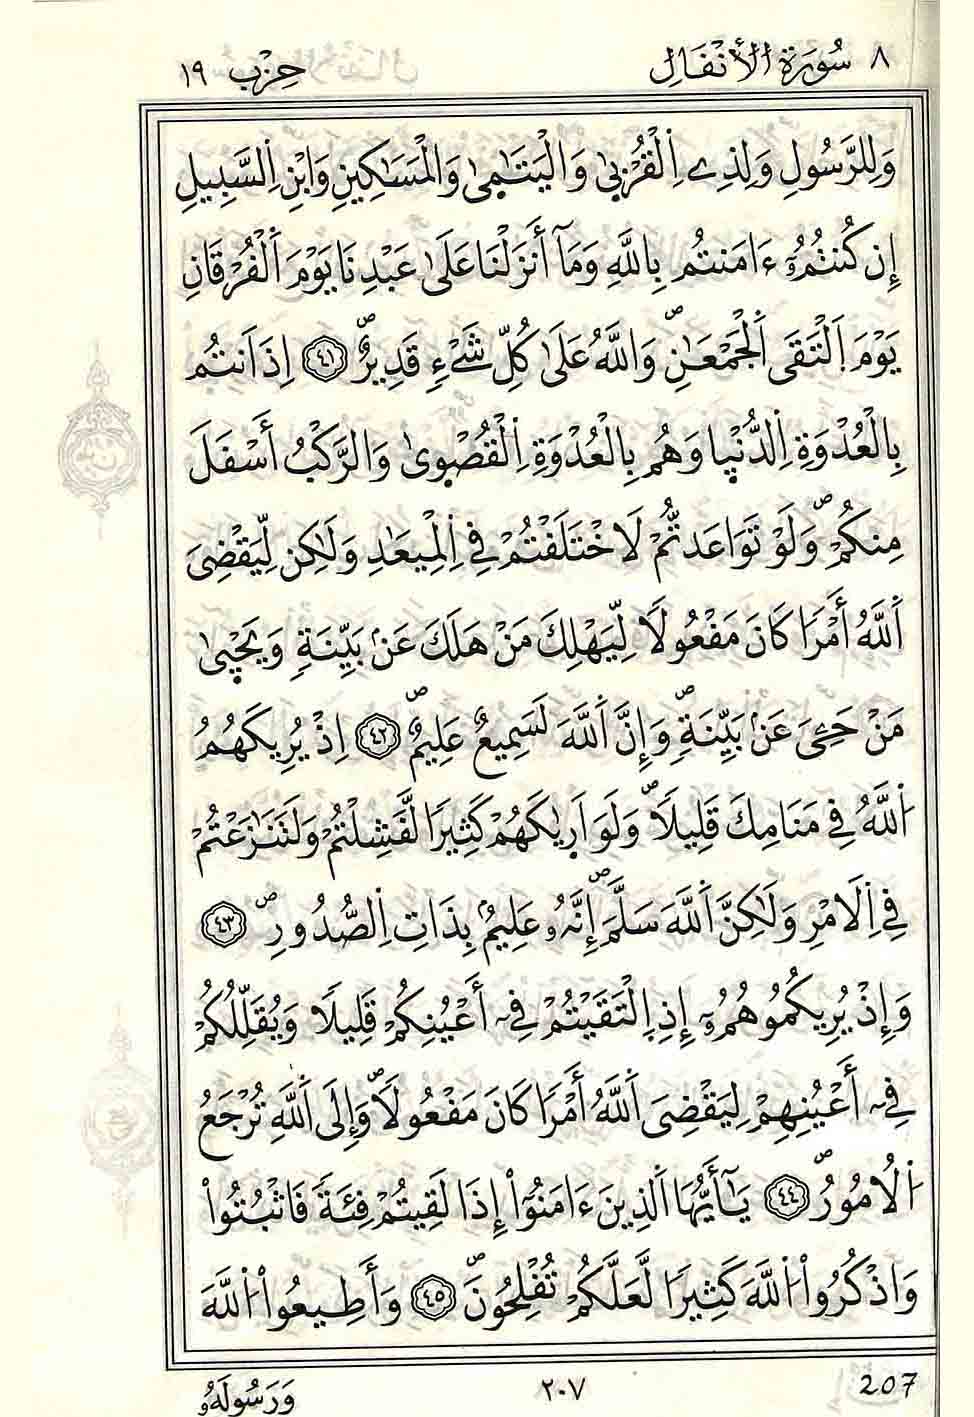 ٨ سُورَةُ الْأَنْفَالِ حِزْب ١٩
وَلِلرَّسُولِ وَلِذِے اِ۬لْقُرْبٰى وَالْيَتَٰمٰى وَالْمَسَٰكِينِ وَابْنِ اِ۬لسَّبِيلِ
إِن كُنتُمُۥٓ ءَامَنتُم بِاللَّهِ وَمَآ أَنزَلْنَا عَلَىٰ عَبْدِنَا يَوْمَ اَ۬لْفُرْقَانِ
يَوْمَ اَ۪لْتَقَى اَ۬لْجَمْعَٰنِۖ وَاللَّهُ عَلَىٰ كُلِّ شَےْءٖ قَدِيرٌۖ ٤١ اِذَ اَنتُم
بِالْعُدْوَةِ اِ۬لدُّنْي۪ا وَهُم بِالْعُدْوَةِ اِ۬لْقُصْو۪ىٰ وَالرَّكْبُ أَسْفَلَ
مِنكُمْۖ وَلَوْ تَوَاعَدتُّمْ لَاخْتَلَفْتُمْ فِے اِ۬لْمِيعَٰدِ وَلَٰكِن لِّيَقْضِىَ
اَ۬للَّهُ أَمْرٗا كَانَ مَفْعُولٗا لِّيَهْلِكَ مَنْ هَلَكَ عَنۢ بَيِّنَةٖ وَيَحْي۪ىٰ
مَنْ حَيِىَ عَنۢ بَيِّنَةٖۖ وَإِنَّ اَ۬للَّهَ لَسَمِيعٌ عَلِيمٌۖ ٤٢ اِذْ يُرِيكَهُمُ
اُ۬للَّهُ فِے مَنَامِكَ قَلِيلٗاۖ وَلَوَ اَر۪يٰكَهُمْ كَثِيرٗا لَّفَشِلْتُمْ وَلَتَنَٰزَعْتُمْ
فِے اِ۬لَامْرِ وَلَٰكِنَّ اَ۬للَّهَ سَلَّمَۖ إِنَّهُۥ عَلِيمُۢ بِذَاتِ اِ۬لصُّدُورِۖ ٤٣
وَإِذْ يُرِيكُمُوهُمُۥٓ إِذِ اِ۪لْتَقَيْتُمْ فِےٓ أَعْيُنِكُمْ قَلِيلٗا وَيُقَلِّلُكُمْ
فِےٓ أَعْيُنِهِمْ لِيَقْضِىَ اَ۬للَّهُ أَمْرٗا كَانَ مَفْعُولٗاۖ وَإِلَى اَ۬للَّهِ تُرْجَعُ
اُ۬لُامُورُۖ ٤٤ يَٰٓأَيُّهَا اَ۬لذِينَ ءَامَنُوٓاْ إِذَا لَقِيتُمْ فِئَةٗ فَاثْبُتُواْ
وَاذْكُرُواْ اُ۬للَّهَ كَثِيرٗا لَّعَلَّكُمْ تُفْلِحُونَۖ ٤٥ وَأَطِيعُواْ اُ۬للَّهَ
207 ٢٠٧ وَرَسُولَهُۥ